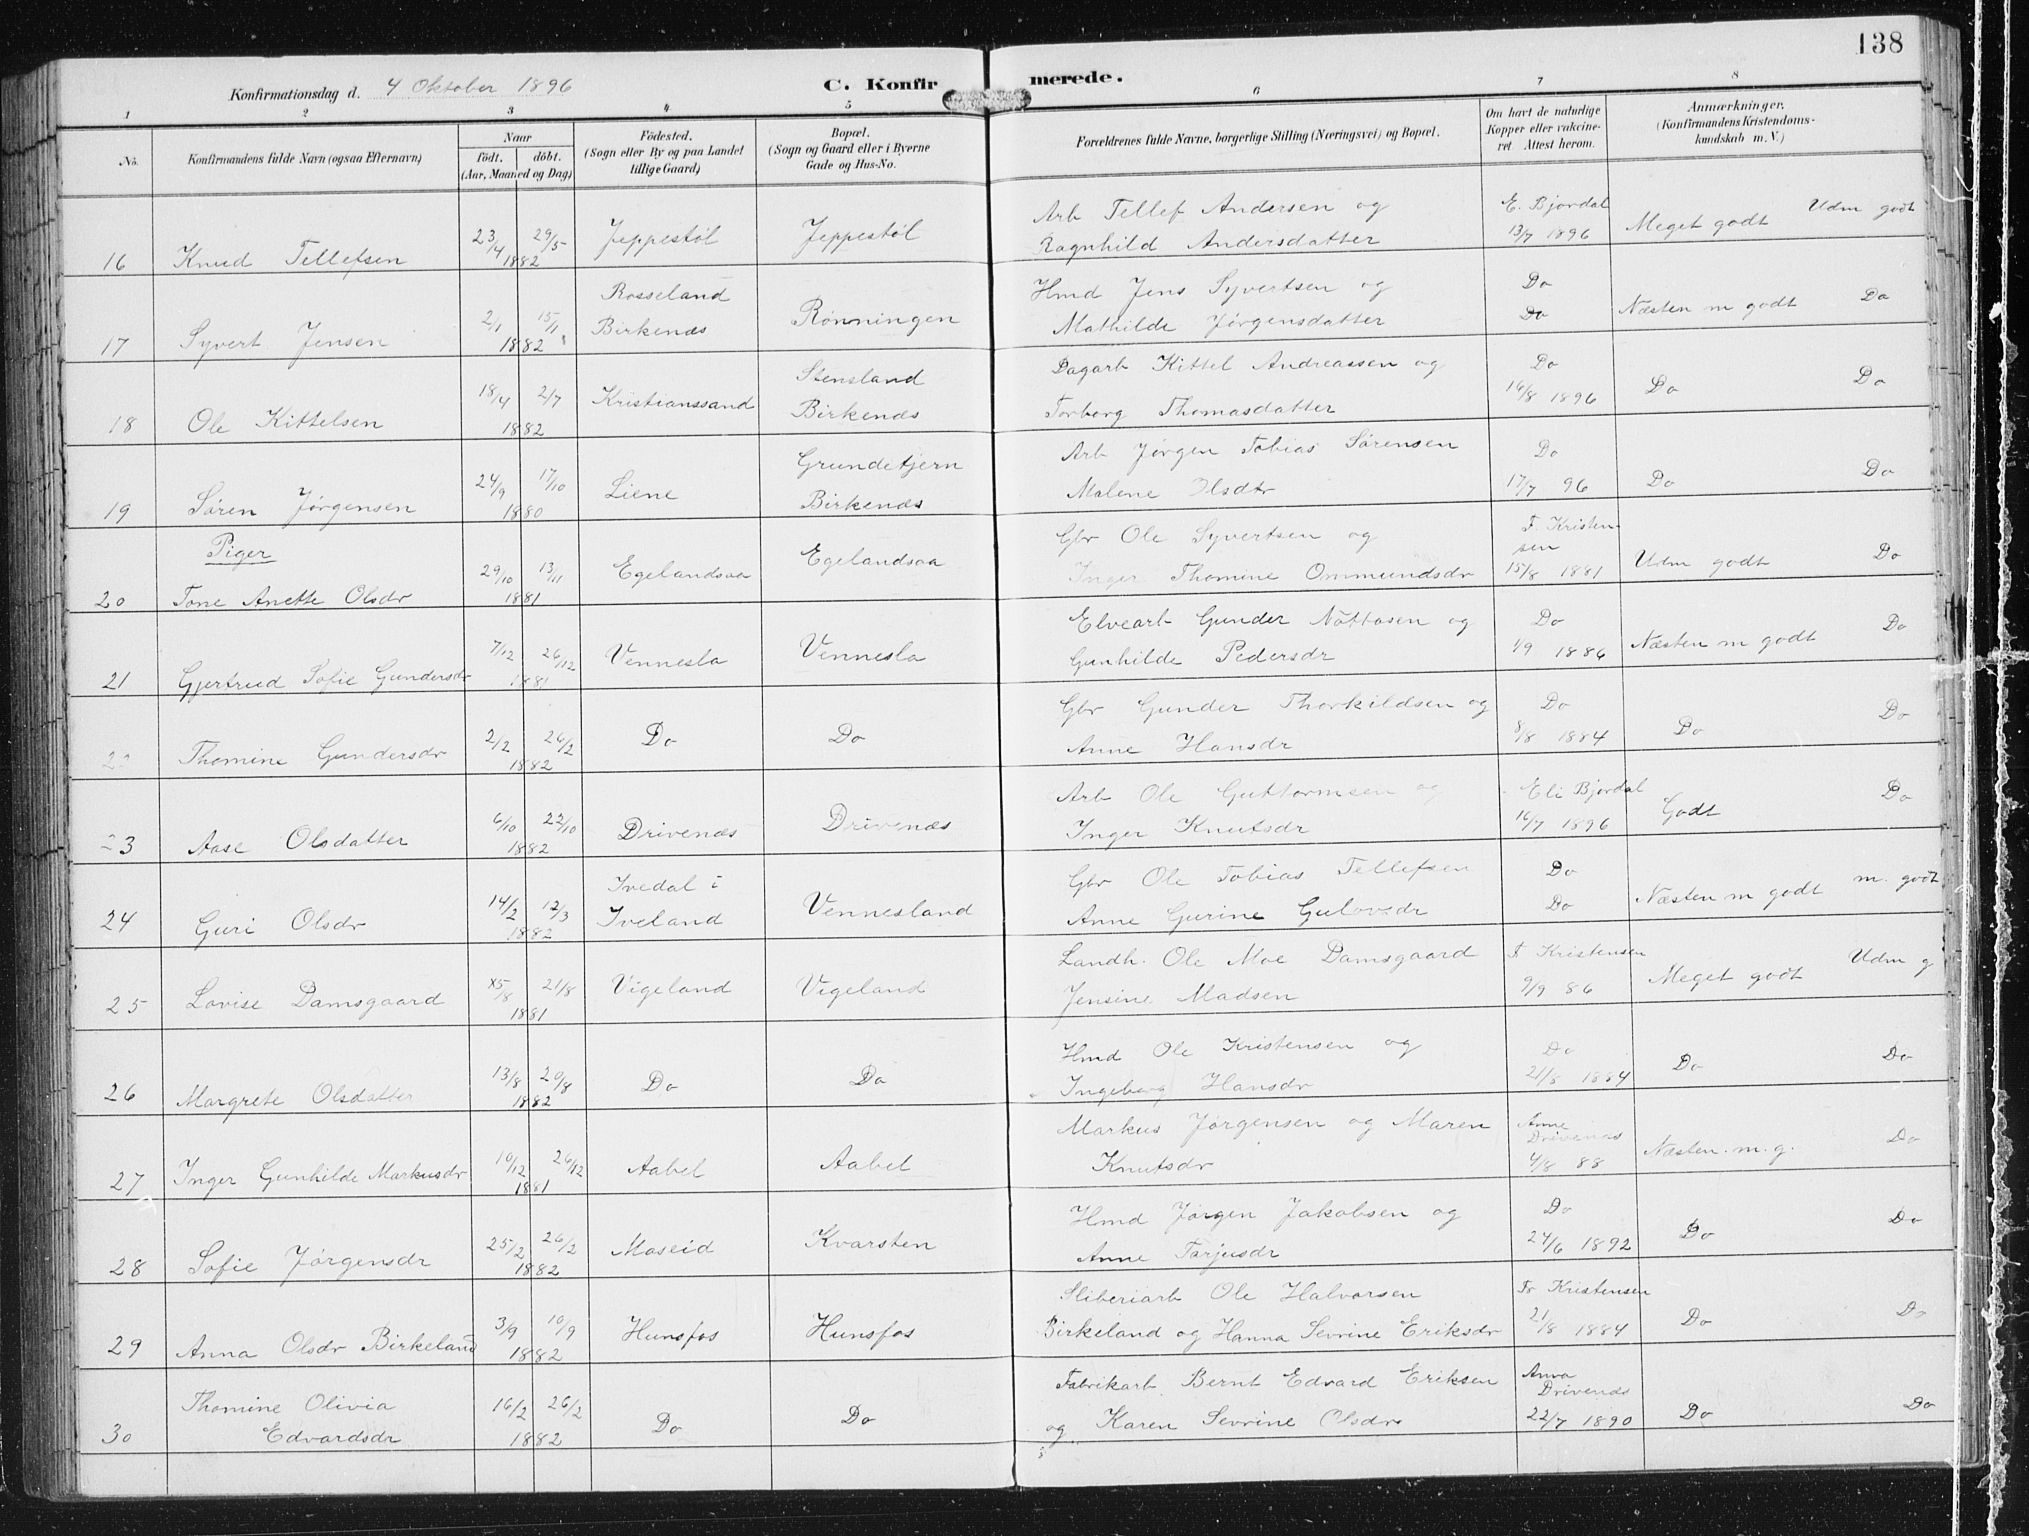 138
Konfirmationsdag d. 4 Oktober 1896 C. Konfirmerede.
1 2 3 4 5 6 7 8
No. Konfirmandens fulde Navn (ogsaa Efternavn) Naar födt. döbt. (Aar, Maaned og Dag) Födested. (Sogn eller By og paa Landet tillige Gaard) Bopæl. (Sogn og Gaard eller i Byerne Gade og Hus-No. Forældrenes fulde Navne, borgerlige Stilling (Næringsvei) og Bopæl. Om havt de naturlige Kopper eller vakcineret. Attest herom. Anmærkninger. (Konfirmandens Kristendomskundskab m. V.)
16 Knud Tellefsen 23/4 29/5 1882 Jeppestøl Jeppestøl Arb Tellef Andersen og
Ragnhild Andersdatter E. Bjørdal 13/7 1896 Meget godt Udm godt
17 Syvert Jensen 2/1 15/1 1882 Rosseland Birkenæs Rønningen Hmd Jens Syvertsen og
Mathilde Jørgensdatter Do Do Næsten m godt Do
18 Ole Kittelsen 18/4 2/7 1882 Kristianssand Stensland Birkenæs Dagarb Kittel Andreassen og
Torborg Thomasdatter Do 16/8 1896 Do Do
19 Søren Jørgensen 24/9 17/10 1880 Liene Grundetjern Birkenæs Arb Jørgen Tobias Sørensen
Malene Olsdtr Do 17/7 96 Do Do
Piger
20 Tone Anette Olsdr 29/10 13/11 1881 Egelandsaa Egelandsaa Gbr Ole Syvertsen og
Inger Thomine Ommundsdr T. Kristensen 15/8 1881 Udm godt Do
21 Gjertrud Sofie Gundersdr 7/12 26/12 1881 Vennesla Vennesla Elvearb Gunder Nottosen og
Gunhilde Pedersdr Do 1/9 1886 Næsten m godt Do
22 Thomine Gundersdr 2/2 26/2 1882 Do Do Gbr Gunder Thorkildsen og
Anne Hansdr Do 8/8 1884 Do Do
23 Aase Olsdatter 6/10 22/10 1882 Drivenæs Drivenæs Arb Ole Guttormsen og
Inger Knutsdr Eli Bjørdal 16/7 1896 Godt Do
24 Guri Olsdr 14/2 12/3 1882 Ivedal i Iveland Vennesland Gbr Ole Tobias Tellefsen
Anne Gurine Gulovsdr Do Do Næsten m godt m. godt
25 Lovise Damsgaard 5/8 21/8 1881 Vigeland Vigeland Landh. Ole Moe Damsgaard
Jensine Madsen T Kristensen 9/9 86 Meget godt Udm g
26 Margrete Olsdatter 13/8 20/8 1882 Do Do Hmd Ole Kristensen og
Ingeborg Hansdr Do 21/8 1884 Do Do
27 Inger Gunhilde Markusdr 10/12 26/12 1881 Aabel Aabel Markus Jørgensen og Maren
Knutsdr Anne Drivenæs 4/8 88 Næsten. m. g. Do
28 Sofie Jørgensdr 25/2 26/2 1882 Moseid Kvarsten Hmd Jørgen Jakobsen og
Anne Tarjusdr Do 24/6 1892 Do Do
29 Anna Olsdr Birkeland 3/9 10/9 1882 Hunsfos Hunsfos Sliberiarb Ole Halvorsen
Birkeland og Hanna Sevrine Eriksdr Tr Kristensen 21/8 1884 Do Do
30 Thomine Olivia Edvardsdr 16/2 26/2 1882 Do Do Fabrikarb Bernt Edvard Eriksen
og Karen Sevrine Olsdr Anna Drivenæs 22/7 1890 Do Do